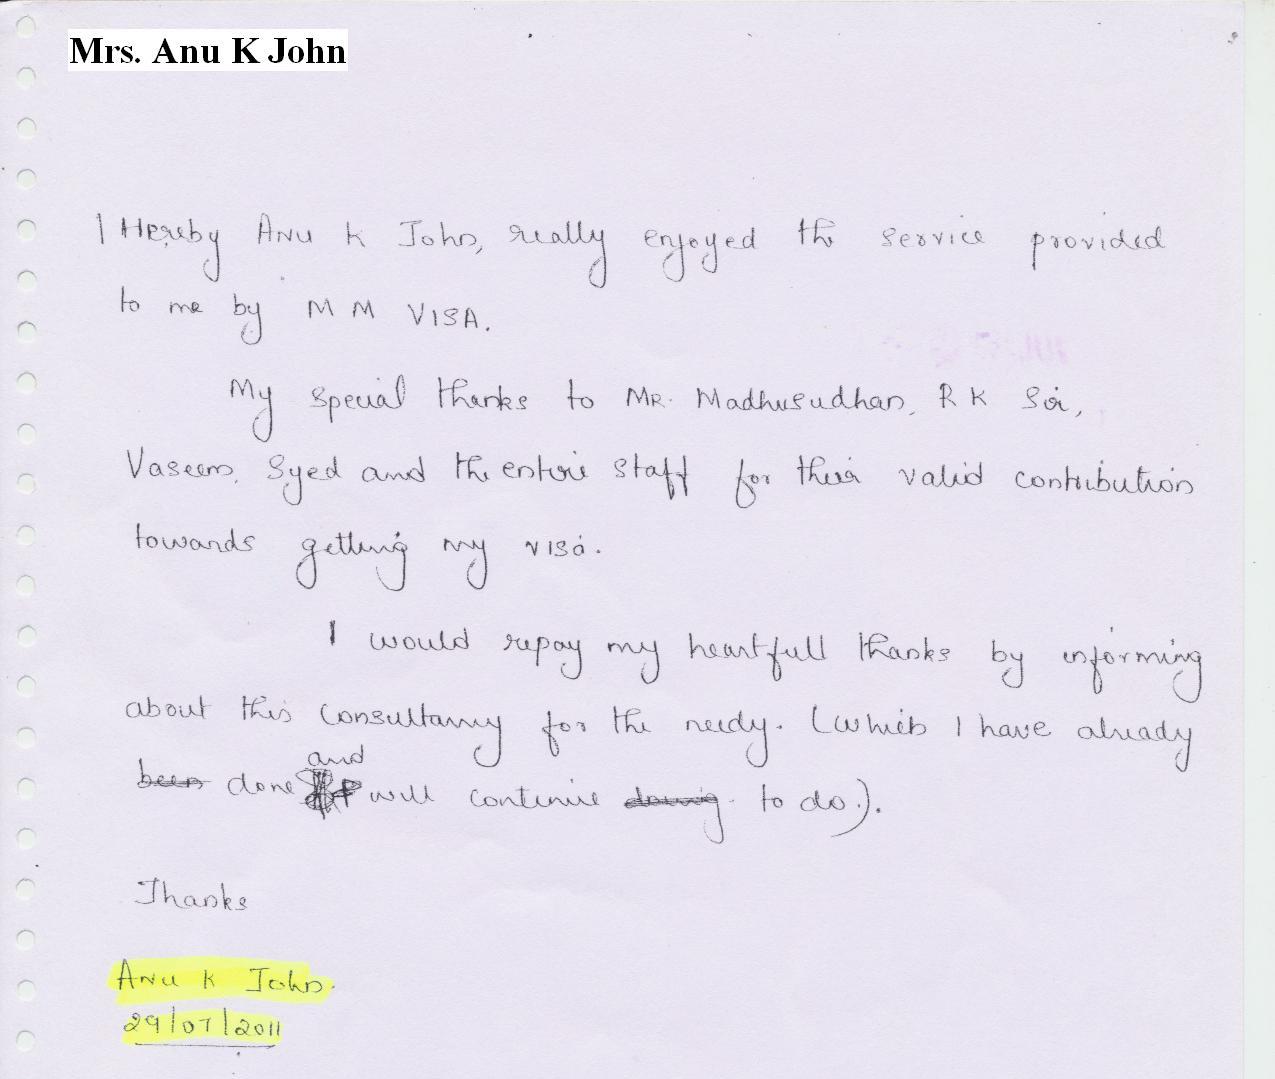 Mrs. Anu K John
I Hereby Anu K John, really enjoyed the service provided
to me by M M VISA.
My special thanks to Mr. Madhusudhan, R K Sir,
Vaseem, Syed and the entire staff for their valid contribution
towards getting my visa.
I would repay my heartfull thanks by informing
about this Consultancy for the needy. (Which I have already
been done and will continue doing to do.).
Thanks
Anu K John.
29/07/2011